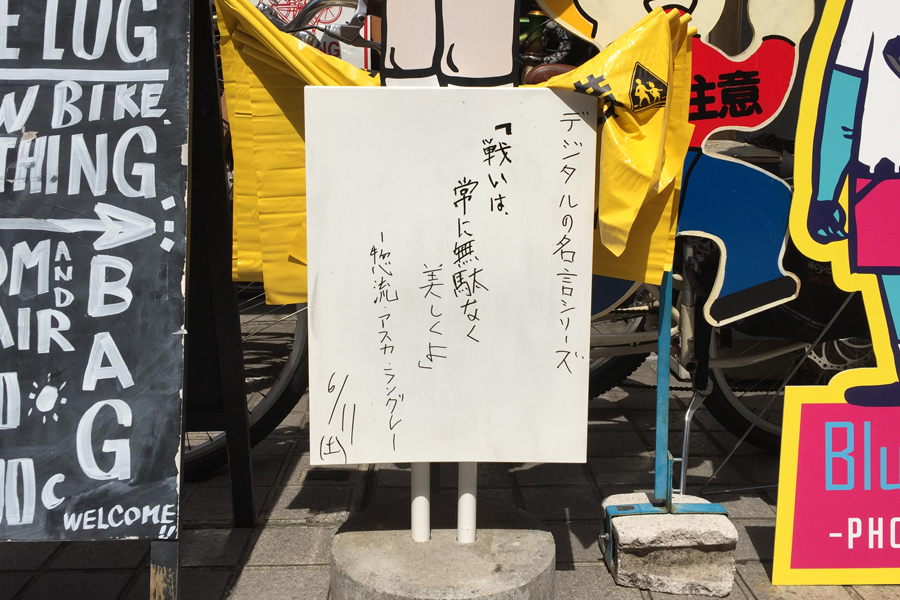 E LOG
W BIKE
THING
OM AND
AIR
BAG
C
WELCOME!!
デジタルの名言シリーズ
「戦いは、
常に無駄なく
美しくよ」
ー惣流・アスカ・ラングレー
6/11
(土)
注意
Blu
-PHO